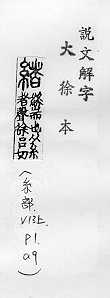 說文解字
大徐本
緒
絲耑也从糸
者聲徐呂切
(糸部.
V13上.
P1.
a9)